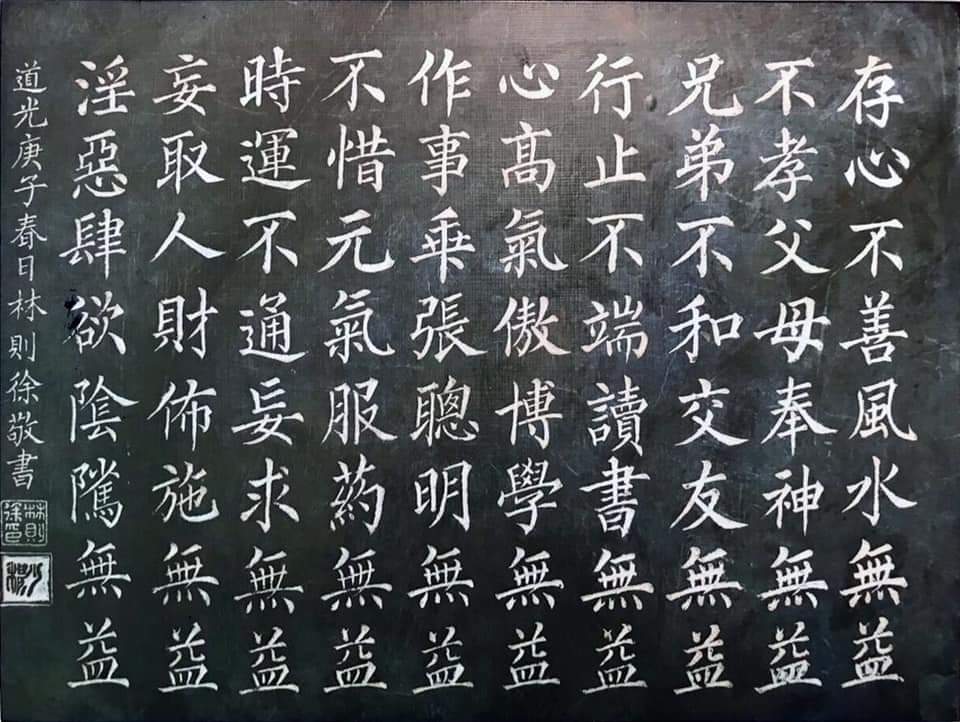 存心不善風水無益
不孝父母奉神無益
兄弟不和交友無益
行止不端讀書無益
心髙氣傲博學無益
作事乖張聰明無益
不惜元氣服葯無益
時運不通妄求無益
妄取人財佈施無益
淫惡肆欲陰隲無益
道光庚子春日林則徐敬書
林則徐印